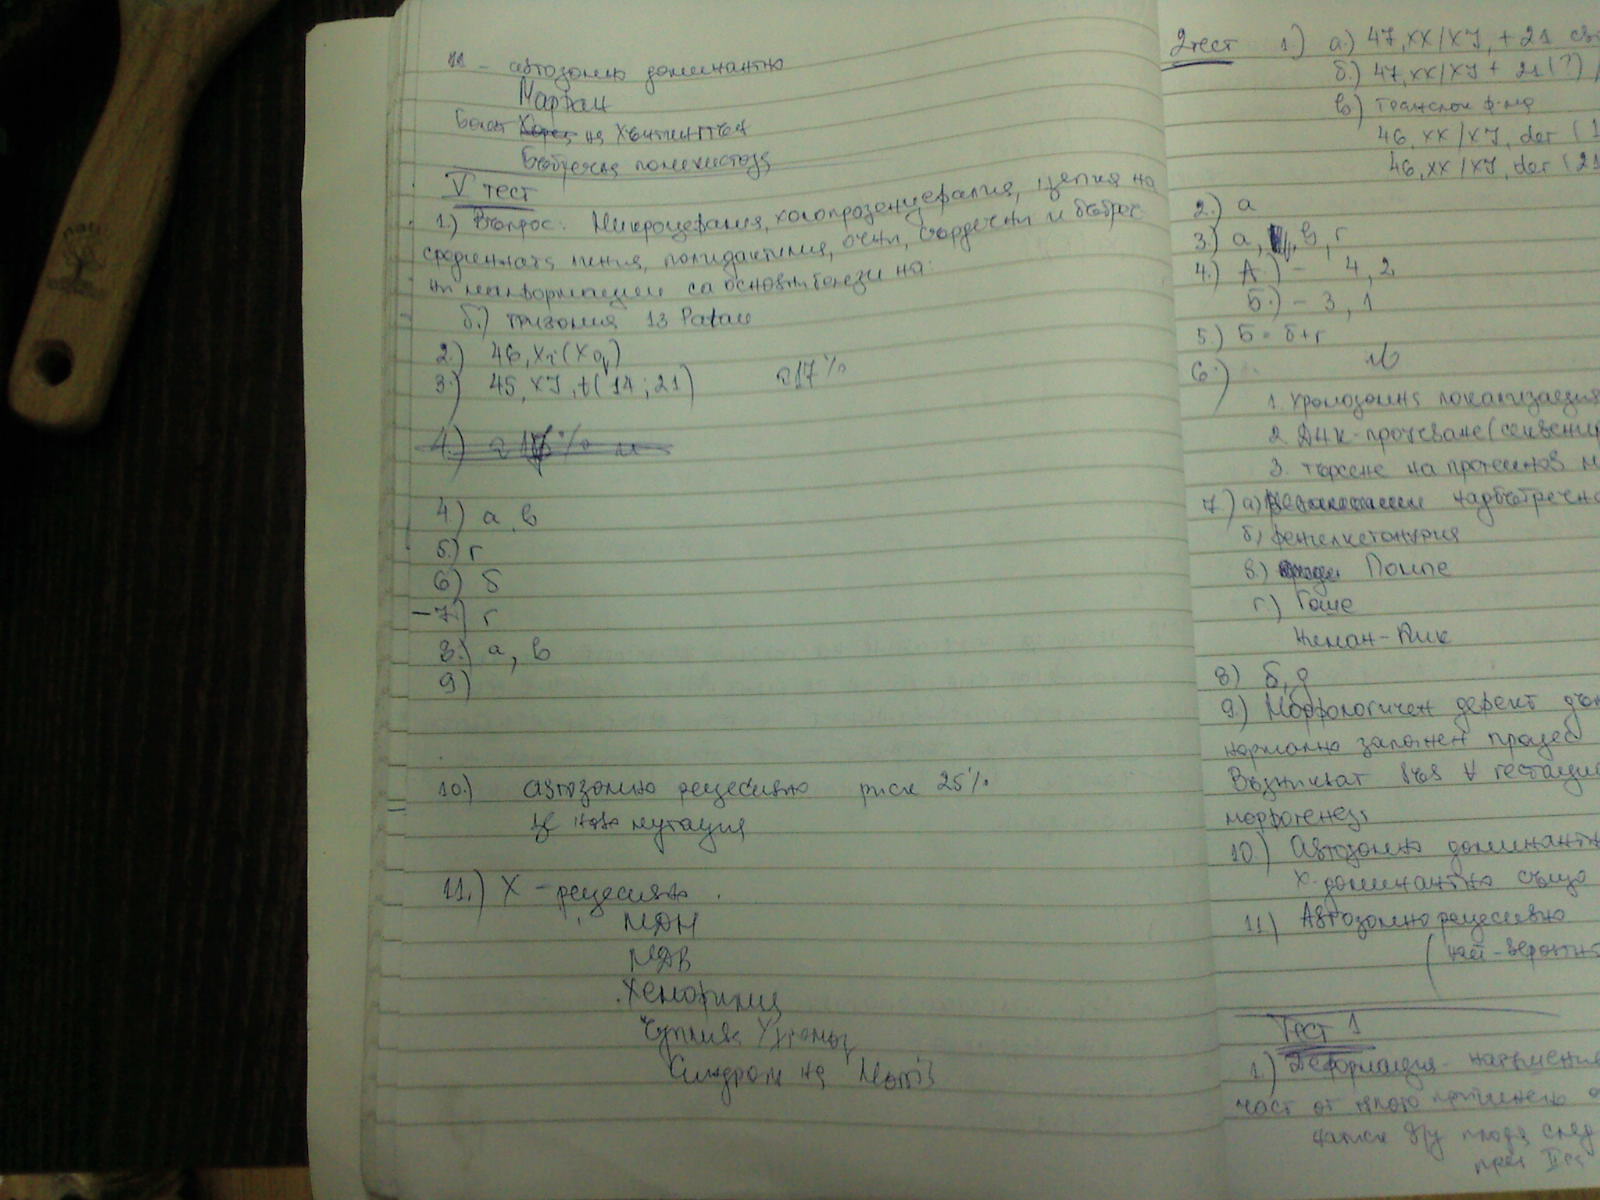 11 - автозомно доминантно
Марфан
Болест Хорея на Хънтингтън
Бъбречна поликистоза
V тест
1.) Въпрос: Микроцефалия, холопрозенцефалия, цепка на
срединната линия, полидактилия, очни, сърдечни и бъбреч
ни малформации са основни белези на:
б.) тризомия 13 Patau
2.) 46,Xi(Xq)
3.) 45,XY,t(14;21) 17%
4.)
4) а, в
5.) г
6) б
-7.) г
8.) а, в
9)
10.) автозомно рецесивно риск 25%
мутация
11.) X - рецесивно.
МДН
МДВ
Хемофилия
Синдром на Morris
2 тест 1.) а.) 47,XX/XY,+21
б.) 47,XX/XY + 21(?)
в) транслок. ф-ма
46,XX/XY, der (1
46,XX/XY, der (21
2.) а
3.) а, в, г
4.) А) - 4, 2
Б.) - 3, 1
5.) Б - б+г
6.)
1. хромозомна локализация
2. ДНК-прочитане (секвени
3. търсене на протеинов м
7) а) надбъбречно
б) фенилкетонурия
в.) Помпе
г) Гоше
Ниман-Пик
8) б, д
9.) Морфологичен дефект дъл
нормално заложен процес
Възникват във V гестацион
морфогенеза
10) Автозомно доминантн
X-доминантно също
11) Автозомно рецесивно
(най-вероятно
Тест 1
1.) Деформация - нарушение
част от тялото причинено о
натиск в/у плода след
през II